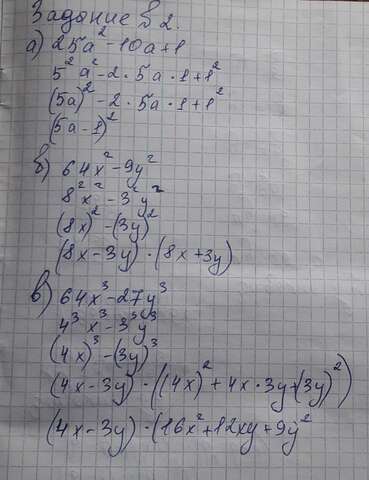 Задание №2.
а) 25a² - 10a + 1
5²a² - 2 · 5a · 1 + 1²
(5a)² - 2 · 5a · 1 + 1²
(5a - 1)²
б) 64x² - 9y²
8²x² - 3²y²
(8x)² - (3y)²
(8x - 3y) · (8x + 3y)
в) 64x³ - 27y³
4³x³ - 3³y³
(4x)³ - (3y)³
(4x - 3y) · ((4x)² + 4x · 3y + (3y)²)
(4x - 3y) · (16x² + 12xy + 9y²